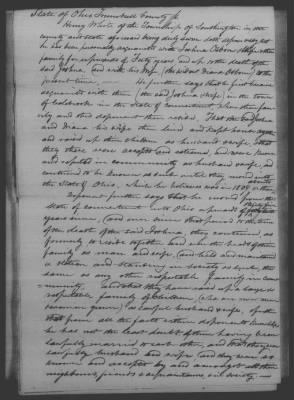 State of Ohio Trumbull County ss
Henry White of the Township of Southington in the
County and State aforesaid being duly sworn doth depose & say that
he has been personally acquainted with Joshua Osborn & his wife & their
family for upwards of Forty years and up to the death of the
said Joshua, and with his wife (the said Diana Osborn) to the
present time. says that he first became
acquainted with them (the said Joshua & his wife) in the town
of Colebrook in the State of Connecticut when their fam-
ily and this deponent then resided. That the said Joshua
and Diana his wife then lived and kept house together
and raised up their children as husband & wife. That
they there were accepted and esteemed and were known
and reputed in community as husband & wife, and
continued to be known as such until they moved into
the State of Ohio, which he believes was in
deponent further says that he moved from the
State of Connecticut into Ohio
years since, (and ever since that period to the time
of the death of the said Joshua, they continued as
formerly to reside together and were the heads of their
family as man and wife, (and held and maintained
a station and standing in society as such, the
same as any other respectable family in com-
munity. and that they have raised up a large &
respectable family of children (who are now men
& women grown) as lawful husband & wife. &
that from all the facts within deponents knowledge
he has not the least doubt of them having been
lawfully married to each other, and that they were
lawfully husband and wife (and they were so
known and accepted by and amongst all their
neighbours, friends & acquaintances in society